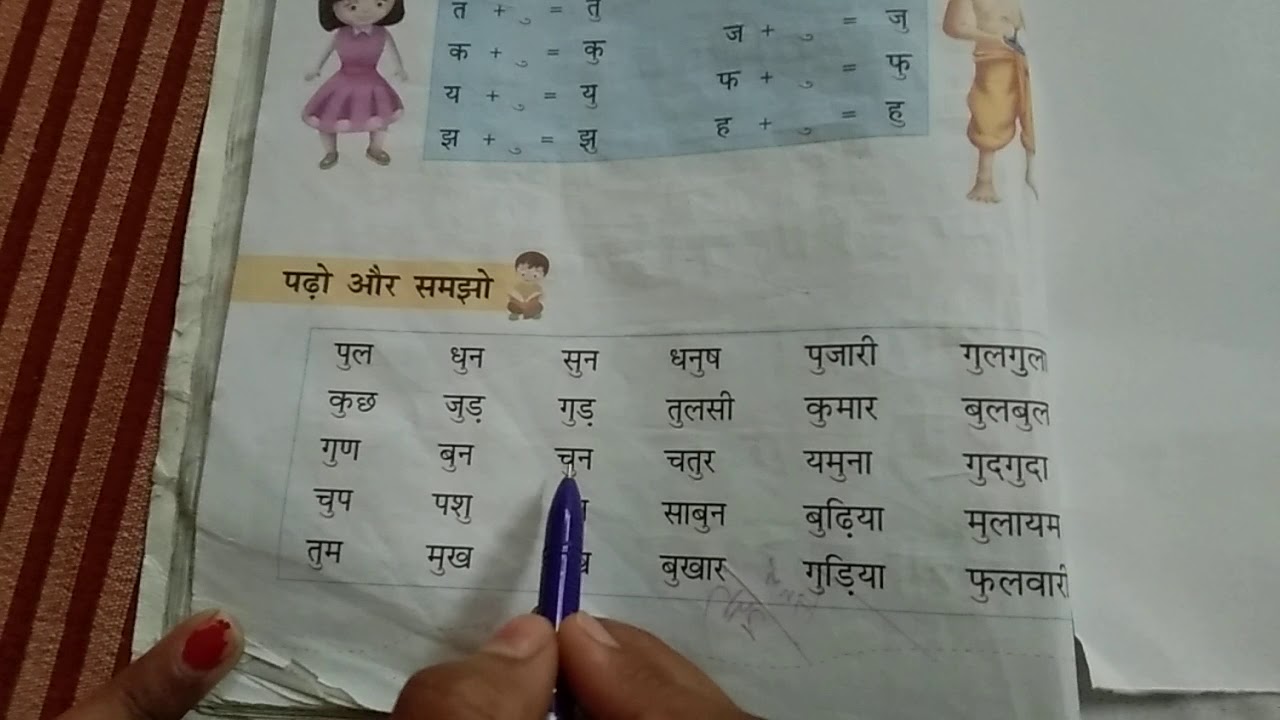 त + ु = तु ज + ु = जु
क + ु = कु फ + ु = फु
य + ु = यु ह + ु = हु
झ + ु = झु
पढ़ो और समझो
पुल धुन सुन धनुष पुजारी गुलगुला
कुछ जुड़ गुड़ तुलसी कुमार बुलबुल
गुण बुन चुन चतुर यमुना गुदगुदा
चुप पशु साबुन बुढ़िया मुलायम
तुम मुख बुखार गुड़िया फुलवारी